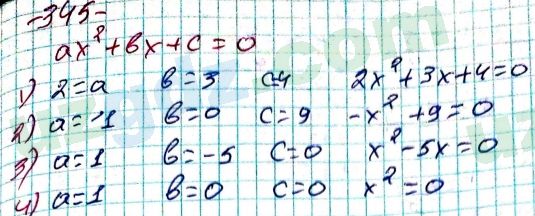 -345-
ax²+bx+c=0
1) 2=a b=3 c=4 2x²+3x+4=0
2) a=-1 b=0 c=9 -x²+9=0
3) a=1 b=-5 c=0 x²-5x=0
4) a=1 b=0 c=0 x²=0